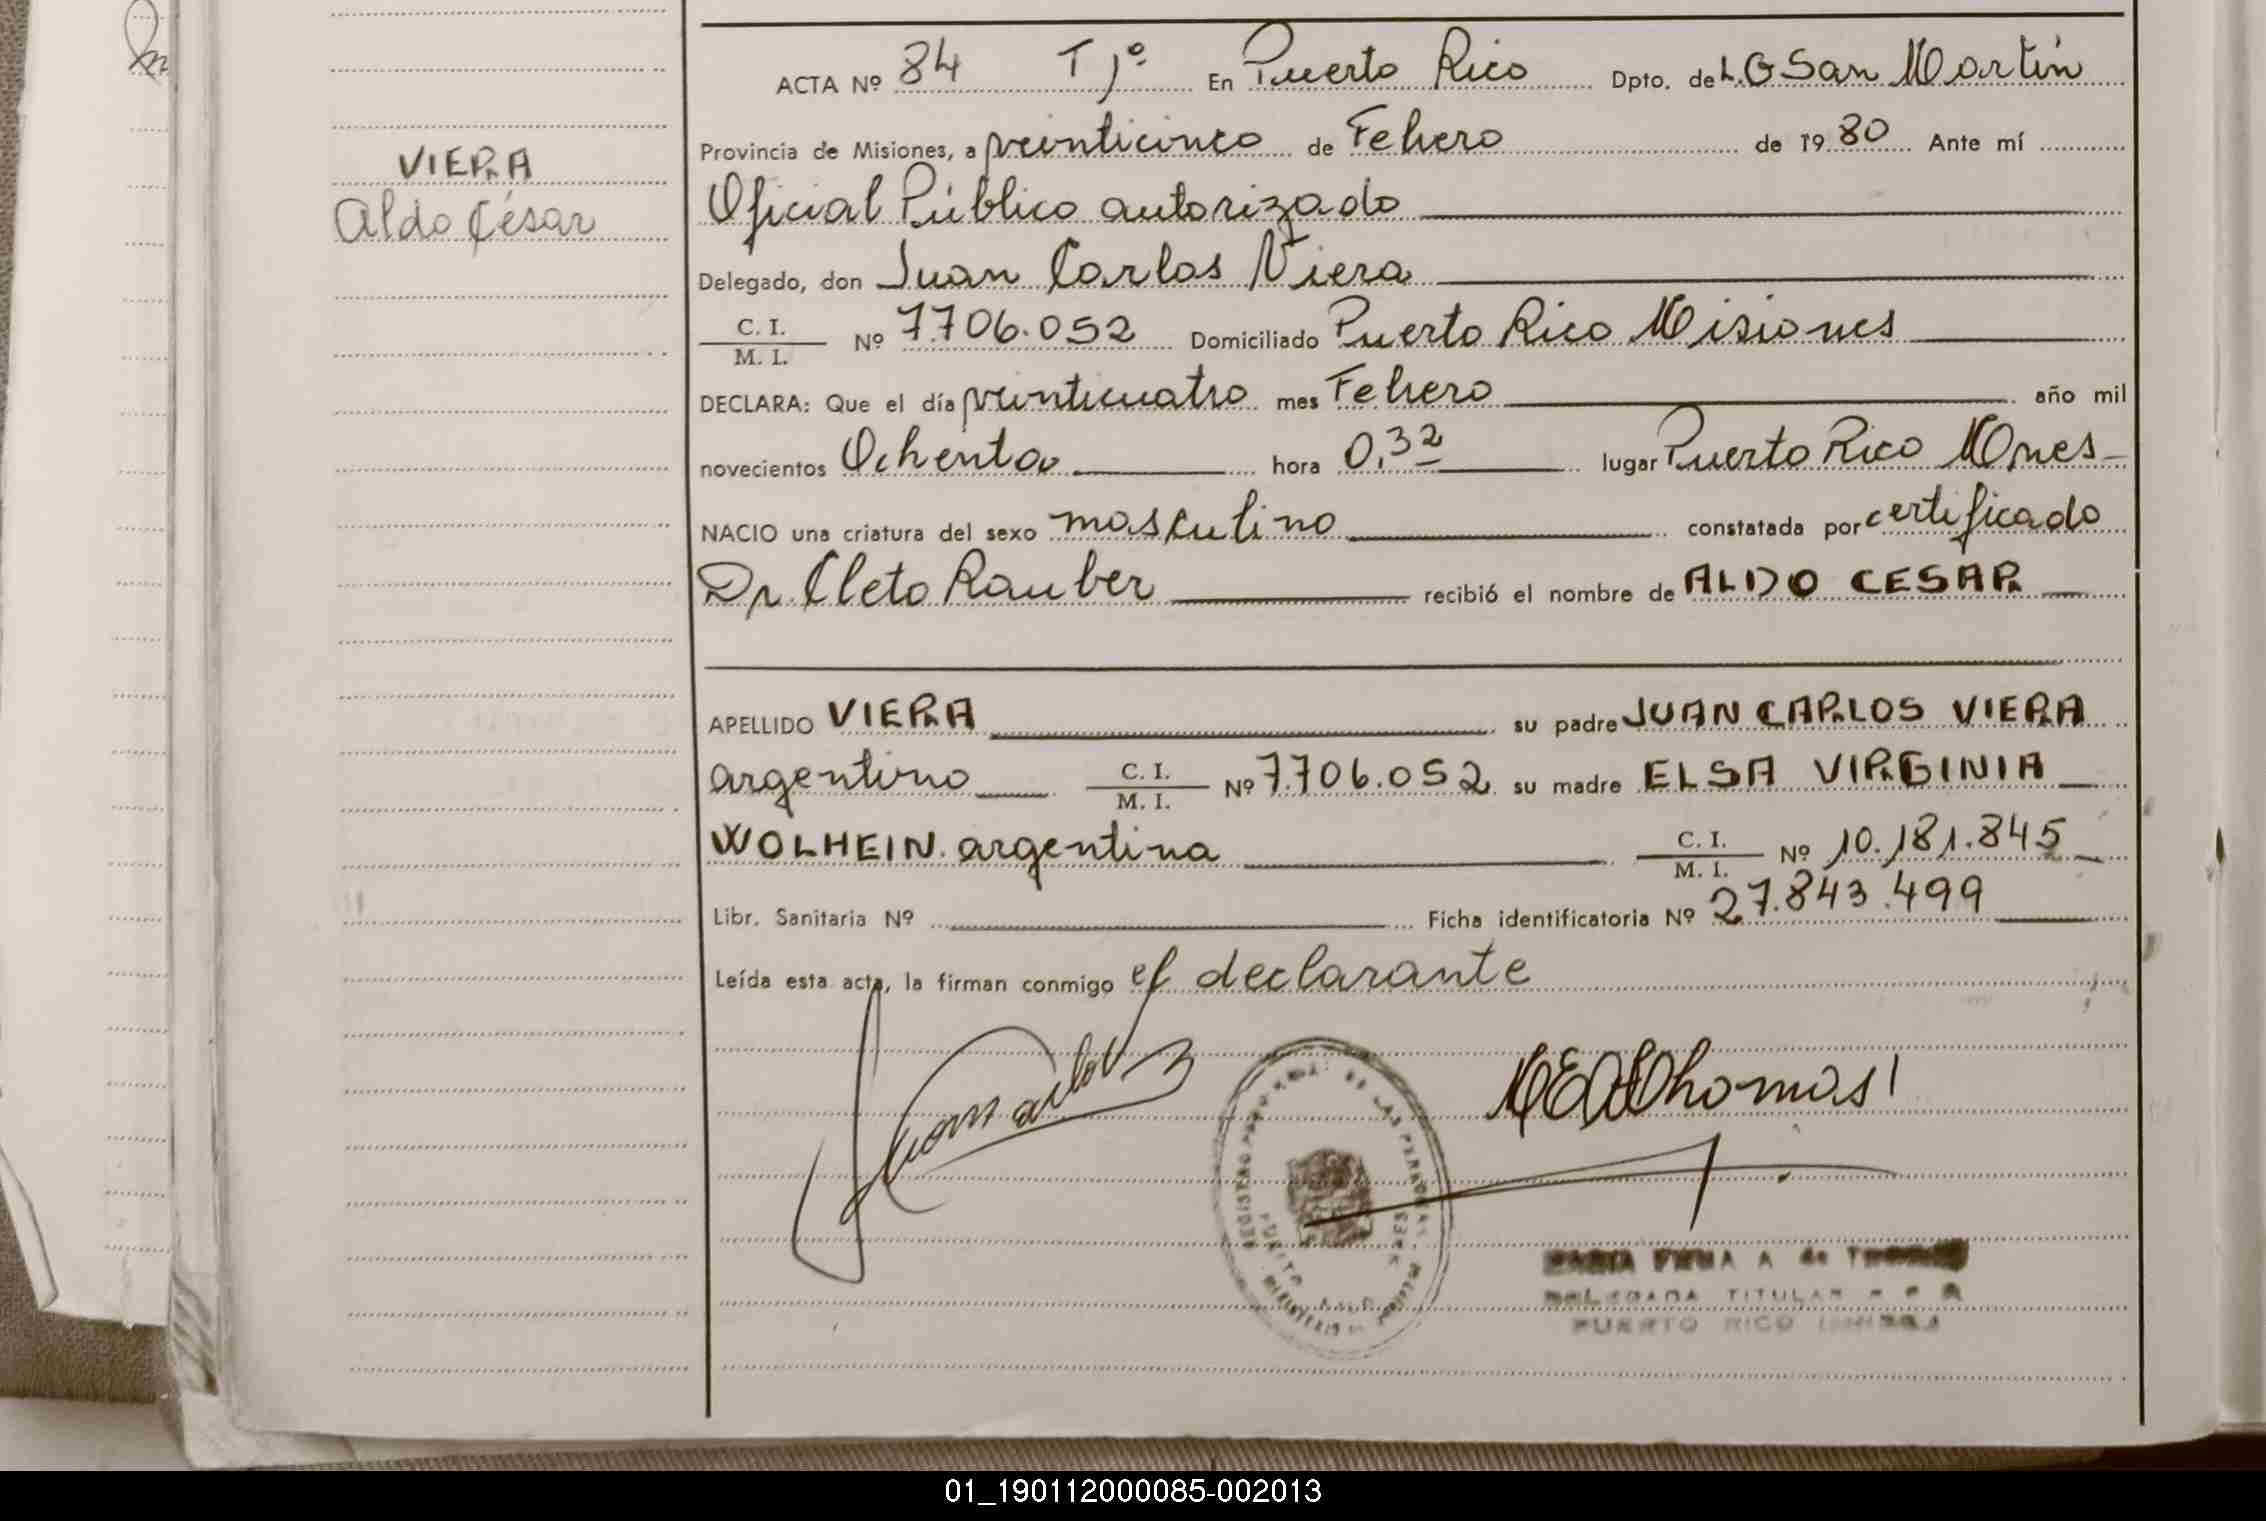 ACTA Nº 84 Tº 1º En Puerto Rico Dpto. de L. G San Martín
VIERA
Provincia de Misiones, a veinticinco de Febrero de 1980 Ante mí
Aldo César
Oficial Público autorizado
Delegado, don Juan Carlos Viera
C. I.
M. I. Nº 7.706.052 Domiciliado Puerto Rico Misiones
DECLARA: Que el día veinticuatro mes Febrero año mil
novecientos Ochenta hora 0,32 lugar Puerto Rico Mnes
NACIO una criatura del sexo masculino constatada por certificado
Dr. Cleto Rauber recibió el nombre de ALDO CESAR
APELLIDO VIERA su padre JUAN CARLOS VIERA
argentino C. I. M. I. Nº 7.706.052 su madre ELSA VIRGINIA
WOLHEIN. argentina C. I. M. I. Nº 10.181.845
Libr. Sanitaria Nº Ficha identificatoria Nº 27.843.499
Leída esta acta, la firman conmigo el declarante
A de
DELEGADA TITULAR
PUERTO RICO
01_190112000085-002013